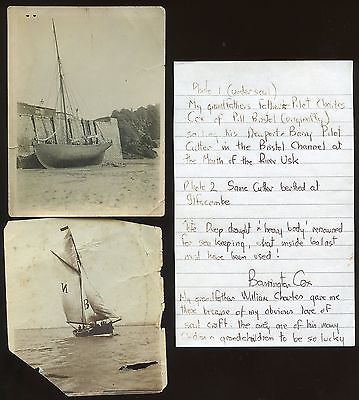 Photo 1 (under sail)
My grandfathers father Pilot Charles
Cox of Pill Bristol (originally)
sailing his Newport & Barry Pilot
Cutter in the Bristol Channel at
the Mouth of the River Usk
Photo 2 Same Cutter beached at
Ilfracombe
Deep draught & 'heavy body' renowned
for sea keeping, what inside ballast
must have been used!
Barrington Cox
My grandfather William Charles gave me
these because of my obvious love of
sail craft. the only one of his many
grandchildren to be so lucky
N
B